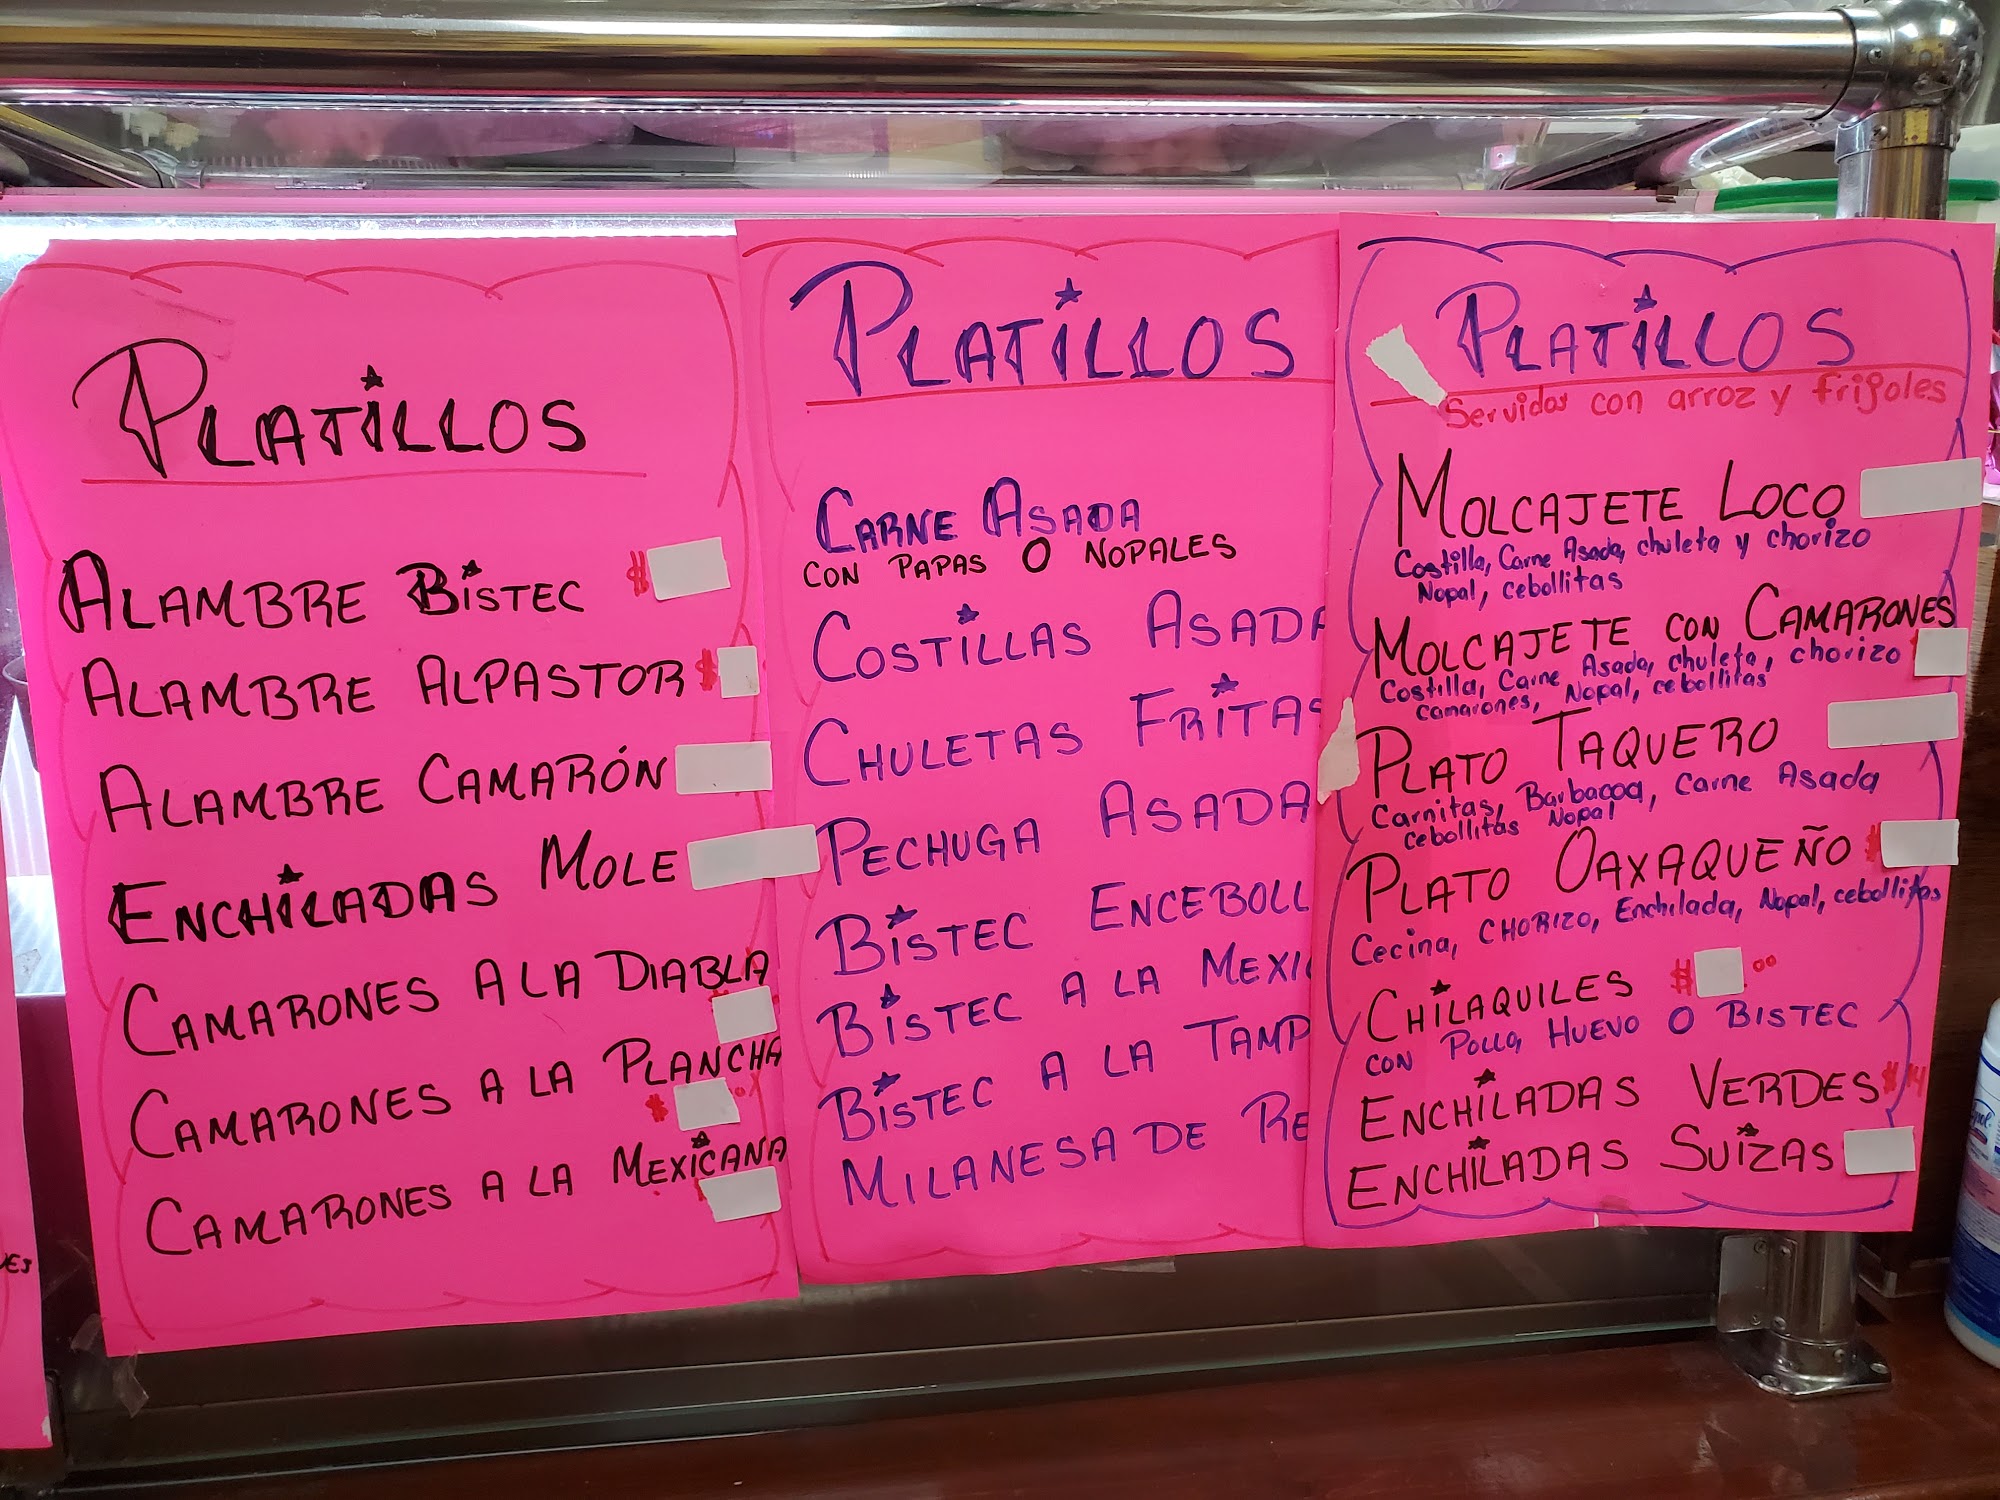 PLATILLOS
ALAMBRE BISTEC $
ALAMBRE ALPASTOR $
ALAMBRE CAMARÓN
ENCHILADAS MOLE
CAMARONES A LA DIABLA
CAMARONES A LA PLANCHA
$
CAMARONES A LA MEXICANA
PLATILLOS
CARNE ASADA
CON PAPAS O NOPALES
COSTILLAS ASADA
CHULETAS FRITAS
PECHUGA ASADA
BISTEC ENCEBOLL
BISTEC A LA MEXIC
BISTEC A LA TAMP
MILANESA DE RE
PLATILLOS
Servidos con arroz y frijoles
MOLCAJETE LOCO
Costilla, Carne Asada, chuleta y chorizo
Nopal, cebollitas
MOLCAJETE CON CAMARONES
Costilla, Carne Asada, chuleta, chorizo
Camarones, Nopal, cebollitas
PLATO TAQUERO
Carnitas, Barbacoa, Carne Asada
cebollitas Nopal
PLATO OAXAQUEÑO $
Cecina, CHORIZO, Enchilada, Nopal, cebollitas
CHILAQUILES $ 00
CON POLLO, HUEVO O BISTEC
ENCHILADAS VERDES $14
ENCHILADAS SUIZAS